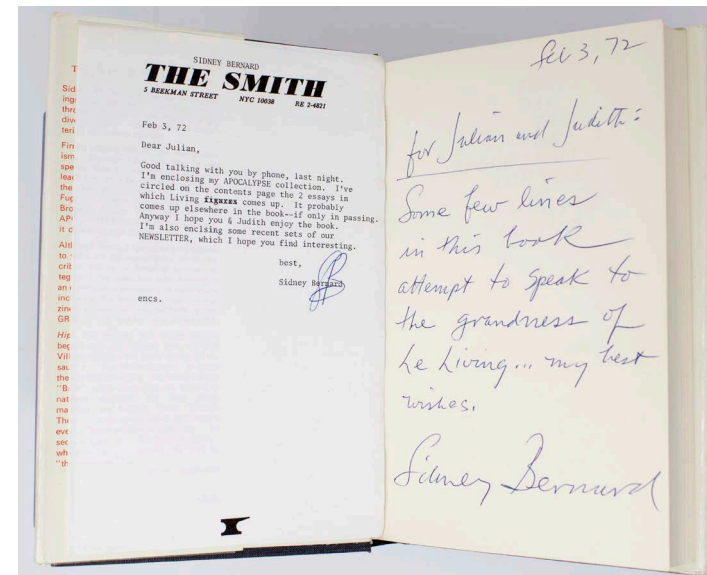 SIDNEY BERNARD
THE SMITH
5 BEEKMAN STREET NYC 10038 RE 2-4821
Feb 3, 72
Dear Julian,
Good talking with you by phone, last night.
I'm enclosing my APOCALYPSE collection. I've
circled on the contents page the 2 essays in
which Living figures comes up. It probably
comes up elsewhere in the book--if only in passing.
Anyway I hope you & Judith enjoy the book.
I'm also enclsing some recent sets of our
NEWSLETTER, which I hope you find interesting.
best,
Sidney Bernard
encs.
Feb 3, 72
for Julian and Judith:
Some few lines
in this book
attempt to speak to
the grandness of
Le Living... my best
wishes.
Sidney Bernard